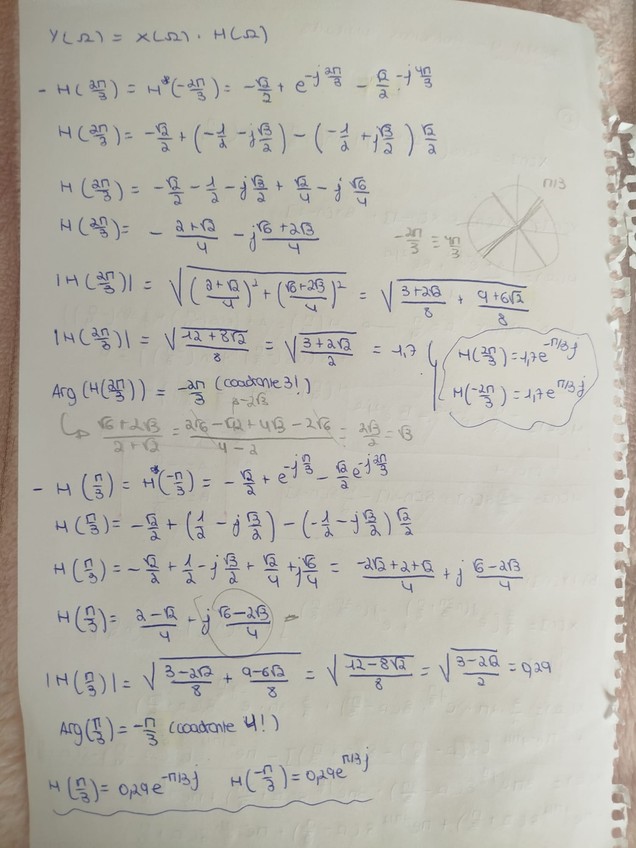 Y(Ω) = X(Ω) · H(Ω)
- H(2π/3) = H*(-2π/3) = -√2/2 + e^-j2π/3 - √2/2 -j4π/3
H(2π/3) = -√2/2 + (-1/2 - j√3/2) - (-1/2 + j√3/2) √2/2
H(2π/3) = -√2/2 - 1/2 - j√3/2 + √2/4 - j √6/4
π/3
H(2π/3) = - 2+√2/4 - j √6+2√3/4
-2π/3 = 4π/3
|H(2π/3)| = √((2+√2/4)² + (√6+2√3/4)²) = √(3+2√2/8 + 9+6√2/8)
|H(2π/3)| = √(12+8√2/8) = √(3+2√2/2) = 1,7
H(2π/3) = 1,7e^-π/3j
H(-2π/3) = 1,7e^π/3j
Arg(H(2π/3)) = -2π/3 (cuadrante 3!)
√6+2√3/2+√2 = 2√6-√12+4√3-2√6/4-2 = 2√3/2 = √3
- H(π/3) = H*(-π/3) = -√2/2 + e^-jπ/3 - √2/2 e^-j2π/3
H(π/3) = -√2/2 + (1/2 - j√3/2) - (-1/2 - j√3/2) √2/2
H(π/3) = -√2/2 + 1/2 - j√3/2 + √2/4 + j√6/4 = -2√2+2+√2/4 + j √6-2√3/4
H(π/3) = 2-√2/4 + j √6-2√3/4
|H(π/3)| = √(3-2√2/8 + 9-6√2/8) = √(12-8√2/8) = √(3-2√2/2) = 0,29
Arg(π/3) = -π/3 (cuadrante 4!)
H(π/3) = 0,29e^-π/3j H(-π/3) = 0,29e^π/3j